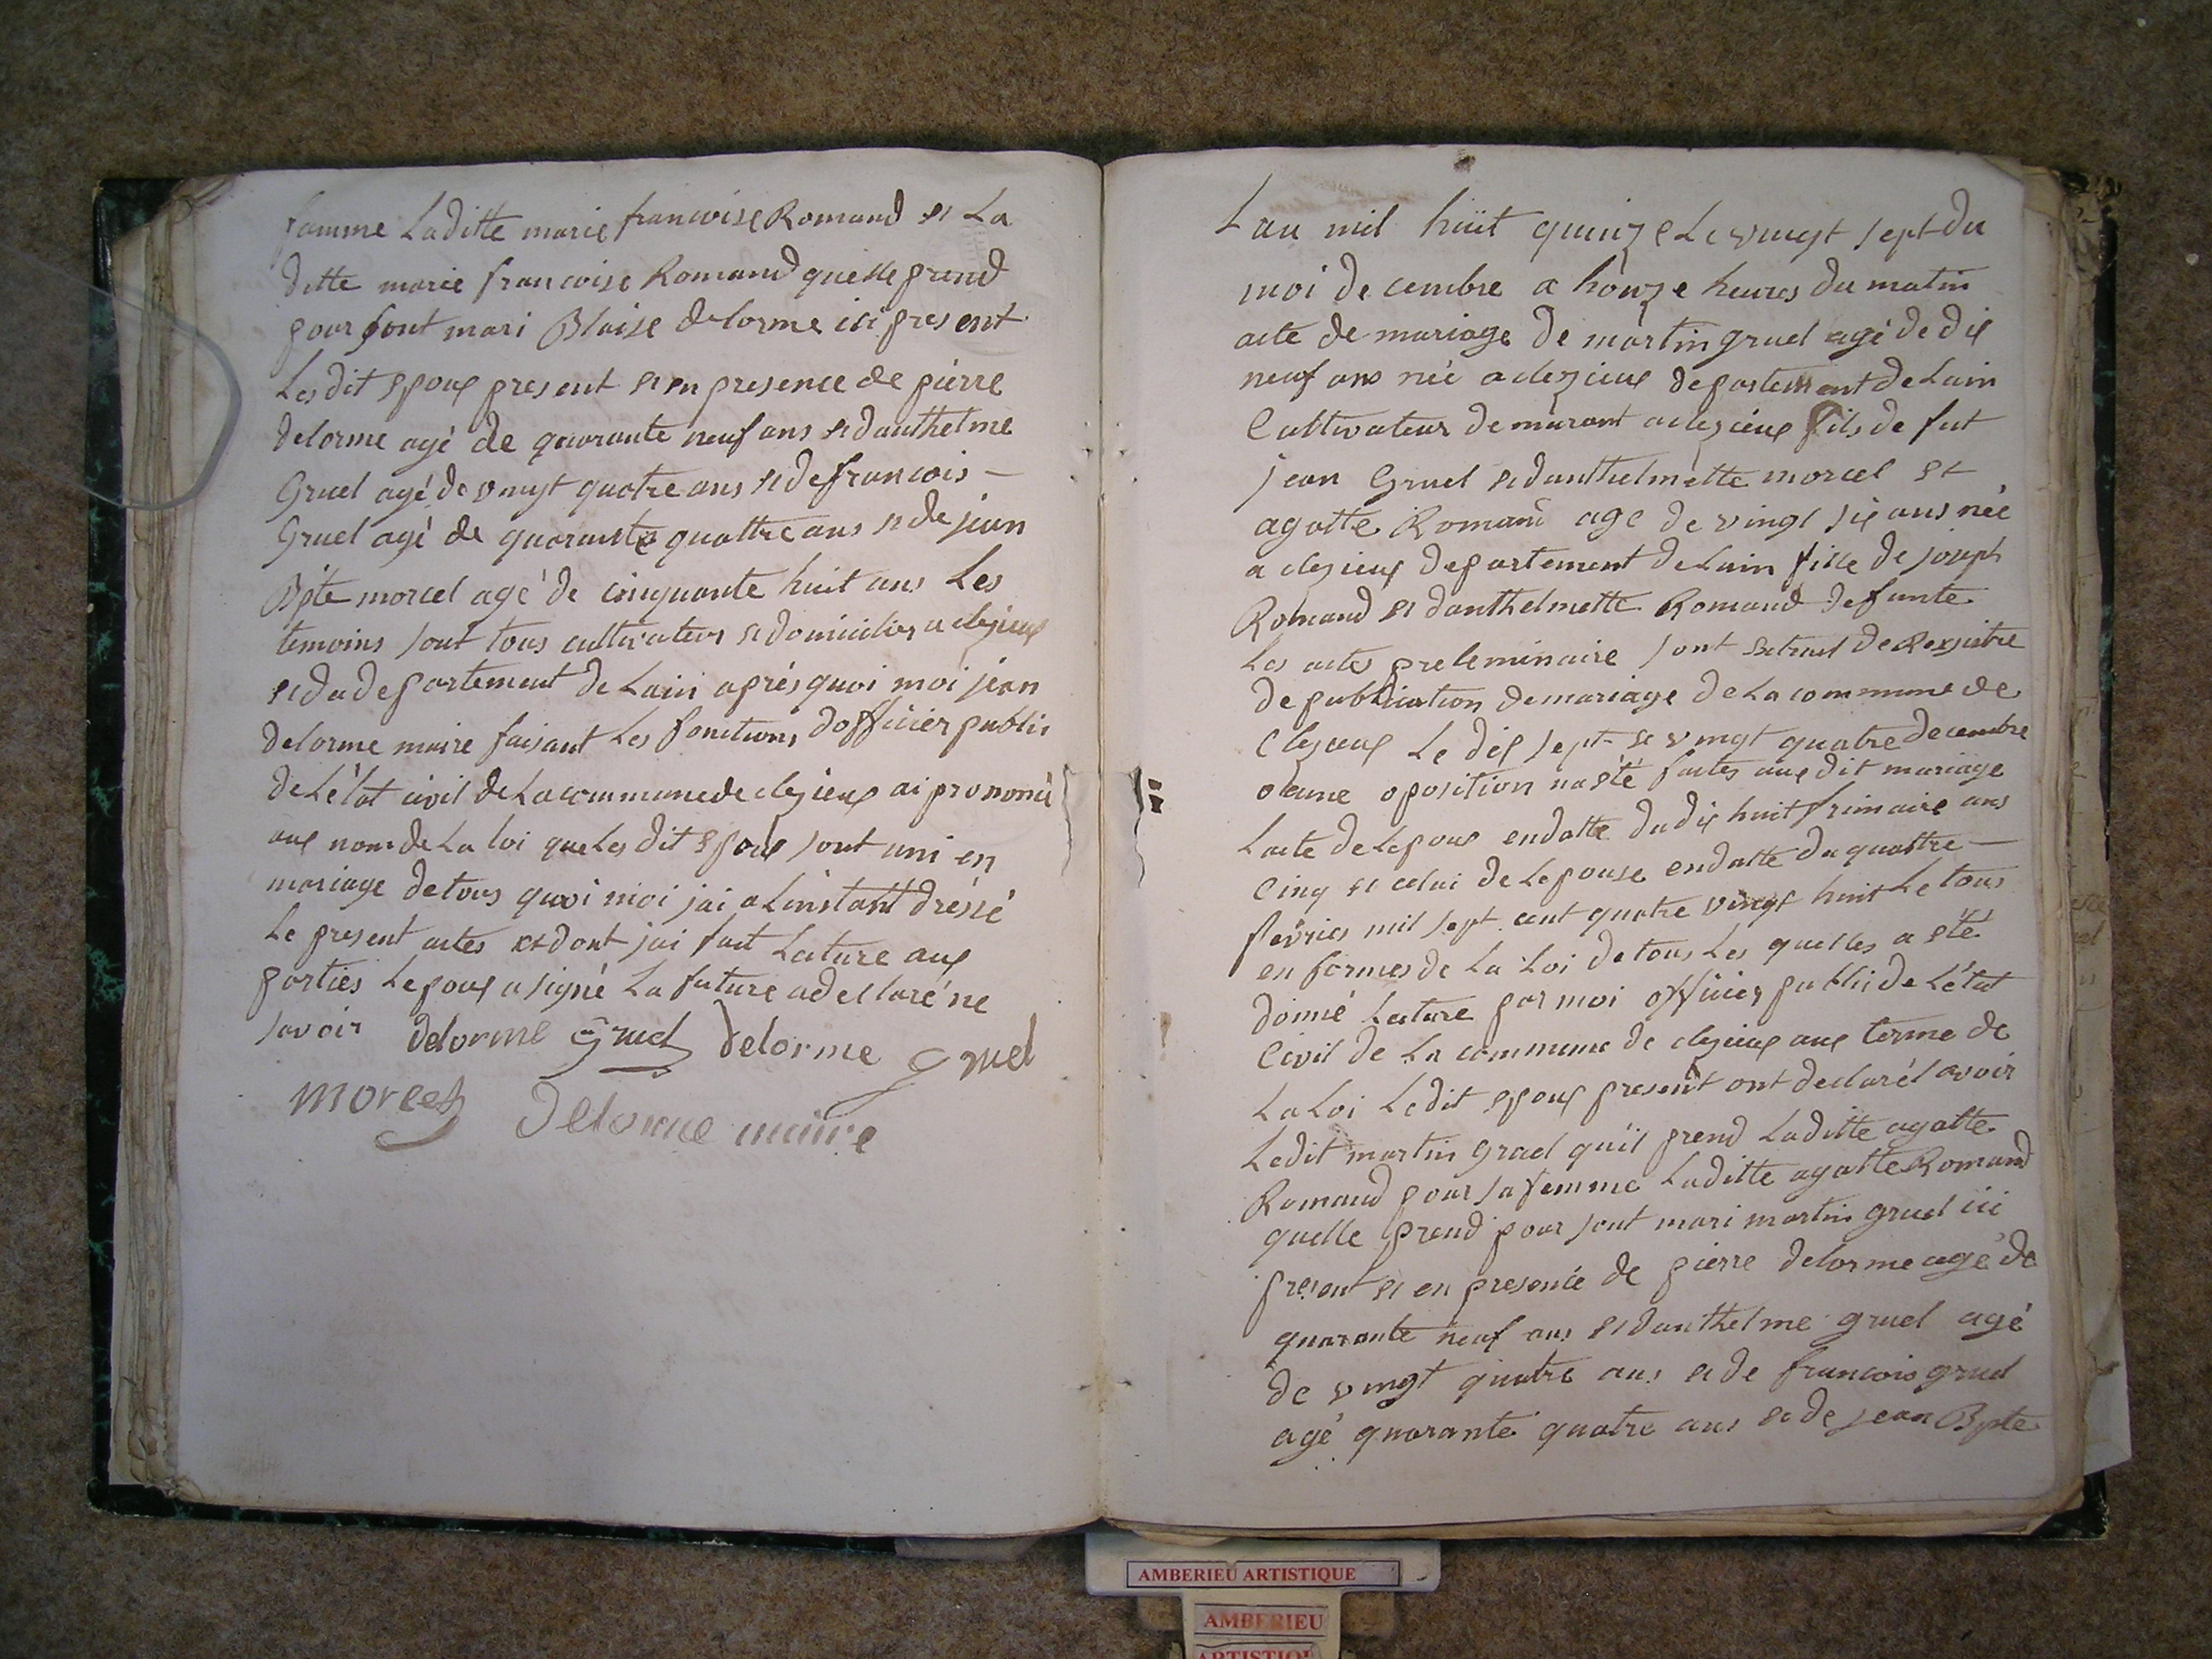 famme Laditte marie francoise Romand et La
ditte marie francoise Romand quelle prend
pour sont mari Blaise delorme ici present
Les dit epoux present et en presence de pierre
delorme agé de quarante neuf ans et danthelme
Gruel agé de vingt quatre ans et de francois -
Gruel agé de quarante quattre ans et de jean
Bpte morcel agé de cinquante huit ans Les
temoins sont tous cultivateur et domicilies a clezieux
et du departement de Lain aprés quoi moi jean
delorme maire faisant Les fonctions dofficier public
de Létat civil de La commune de clezieux ai prononcé
aux nom de La loi que Les dit epoux sont uni en
mariage de tous quoi moi jai a Linstant dréssé
Le present actes et dont jai fait Lecture aux
parties Lepoux a signé La future a declaré ne
savoir delorme Gruel delorme gruel
morcel Delorme maire
Lan mil huit quinze Le vingt sept du
moi decembre a honze heures du matin
acte de mariage de martin gruel agé de dix
neuf ans née a clezieux departement de Lain
Cultivateur demurant a clezieux fils de fut
jean Gruel et danthelmette morcel et
agatte Romand age de vingt six ans née
a clezieux departement de Lain fille de joseph
Romand et danthelmette Romand defunte
Les actes preleminaire sont extrait de Regsitre
de publication de mariage de La commune de
Clezieux Le dix sept et vingt quatre decembre
oqune oposition na été faites aux dit mariage
Lacte de Lepoux en datte du dix huit frimaire ans
Cinq et celui de Lepouse en datte du quattre -
fevries mil sept cent quatre vingt huit Le tous
en formes de La Loi de tous Les quelles a été
donné Lecture par moi officier public de Létat
Civil de La commune de clezieux aux terme de
La Loi Ledit epoux present ont declarél avoir
Ledit martin gruel quil prend Laditte agatte
Romand pour sa femme Laditte agatte Romand
quelle prend pour sont mari martin gruel ici
present et en presence de pierre delorme agé de
quarante neuf ans et danthelme gruel agé
de vingt quatre ans et de francois gruel
agé quarante quatre ans et de jean Bpte
AMBERIEU ARTISTIQUE
AMBERIEU
ARTISTIQUE